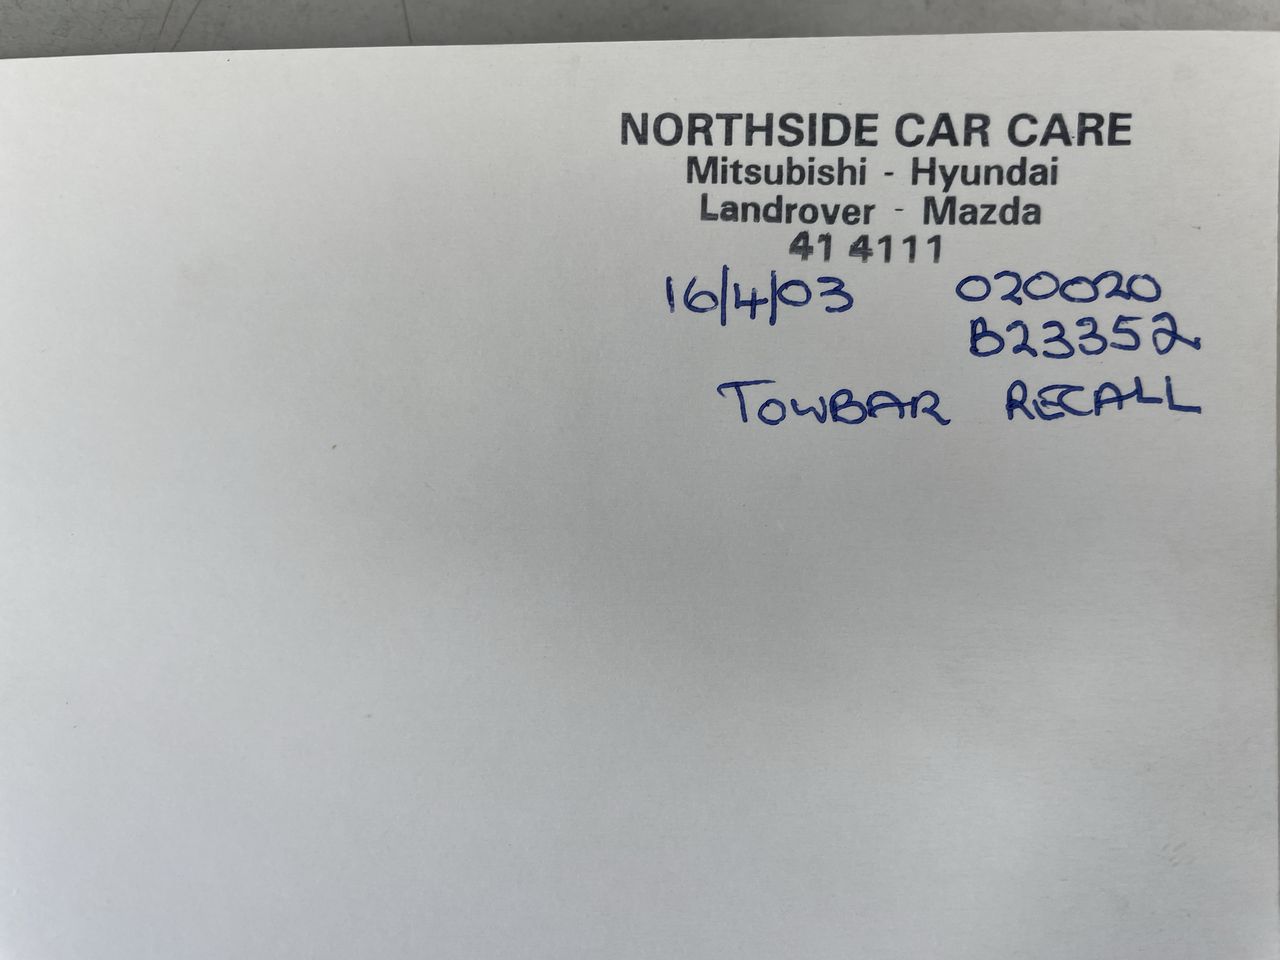 NORTHSIDE CAR CARE
Mitsubishi - Hyundai
Landrover - Mazda
41 4111
16/4/03 020020
B23352
TOWBAR RECALL